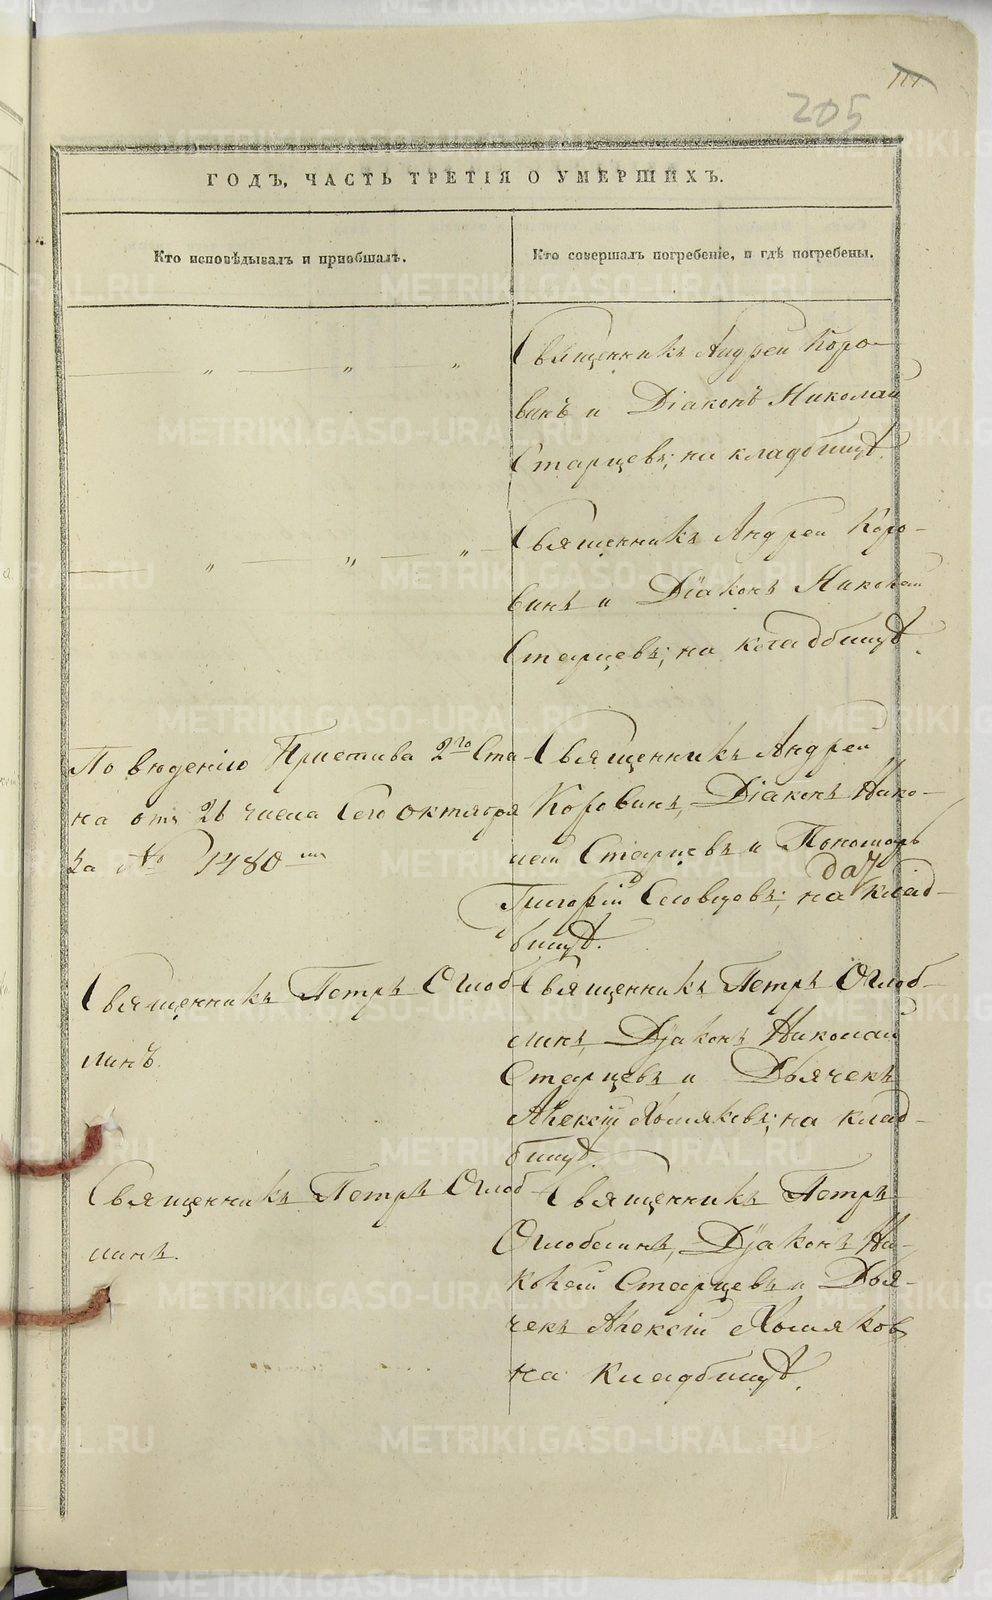 205
ГОДЪ, ЧАСТЬ ТРЕТІЯ О УМЕРШИХЪ.
Кто исповѣдывалъ и пріобщалъ.
Кто совершалъ погребеніе, и гдѣ погребены.
Священникъ Андрей Коро-
винъ и Діаконъ Николай
Старцевъ; на кладбищѣ.
Священникъ Андрей Коро-
винъ и Діаконъ Николай
Старцевъ; на кладбищѣ.
По вѣденію Пристава 2го Ста-
на отъ 26 числа сего октября
за № 1480
Священникъ Андрей
Коровинъ, Діаконъ Нико-
лай Старцевъ и Пономарь
Григорій Словцовъ; на клад-
бищѣ.
Священникъ Петръ Оглоб-
линъ.
Священникъ Петръ Оглоб-
линъ, Діаконъ Николай
Старцевъ и Дьячекъ
Алексій Хомяковъ; на клад-
бищѣ.
Священникъ Петръ Оглоб-
линъ.
Священникъ Петръ
Оглобелинъ, Діаконъ Ни-
колай Старцевъ и Дья-
чекъ Алексій Хомяков
на кладбищѣ.
METRIKI.GASO-URAL.RU